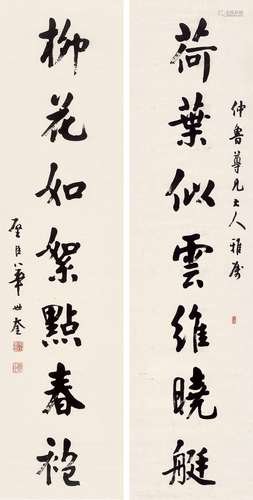 仲魯尊兄大人雅屬
荷葉似雲維曉艇
柳花如絮點春袍
璧臣華世奎